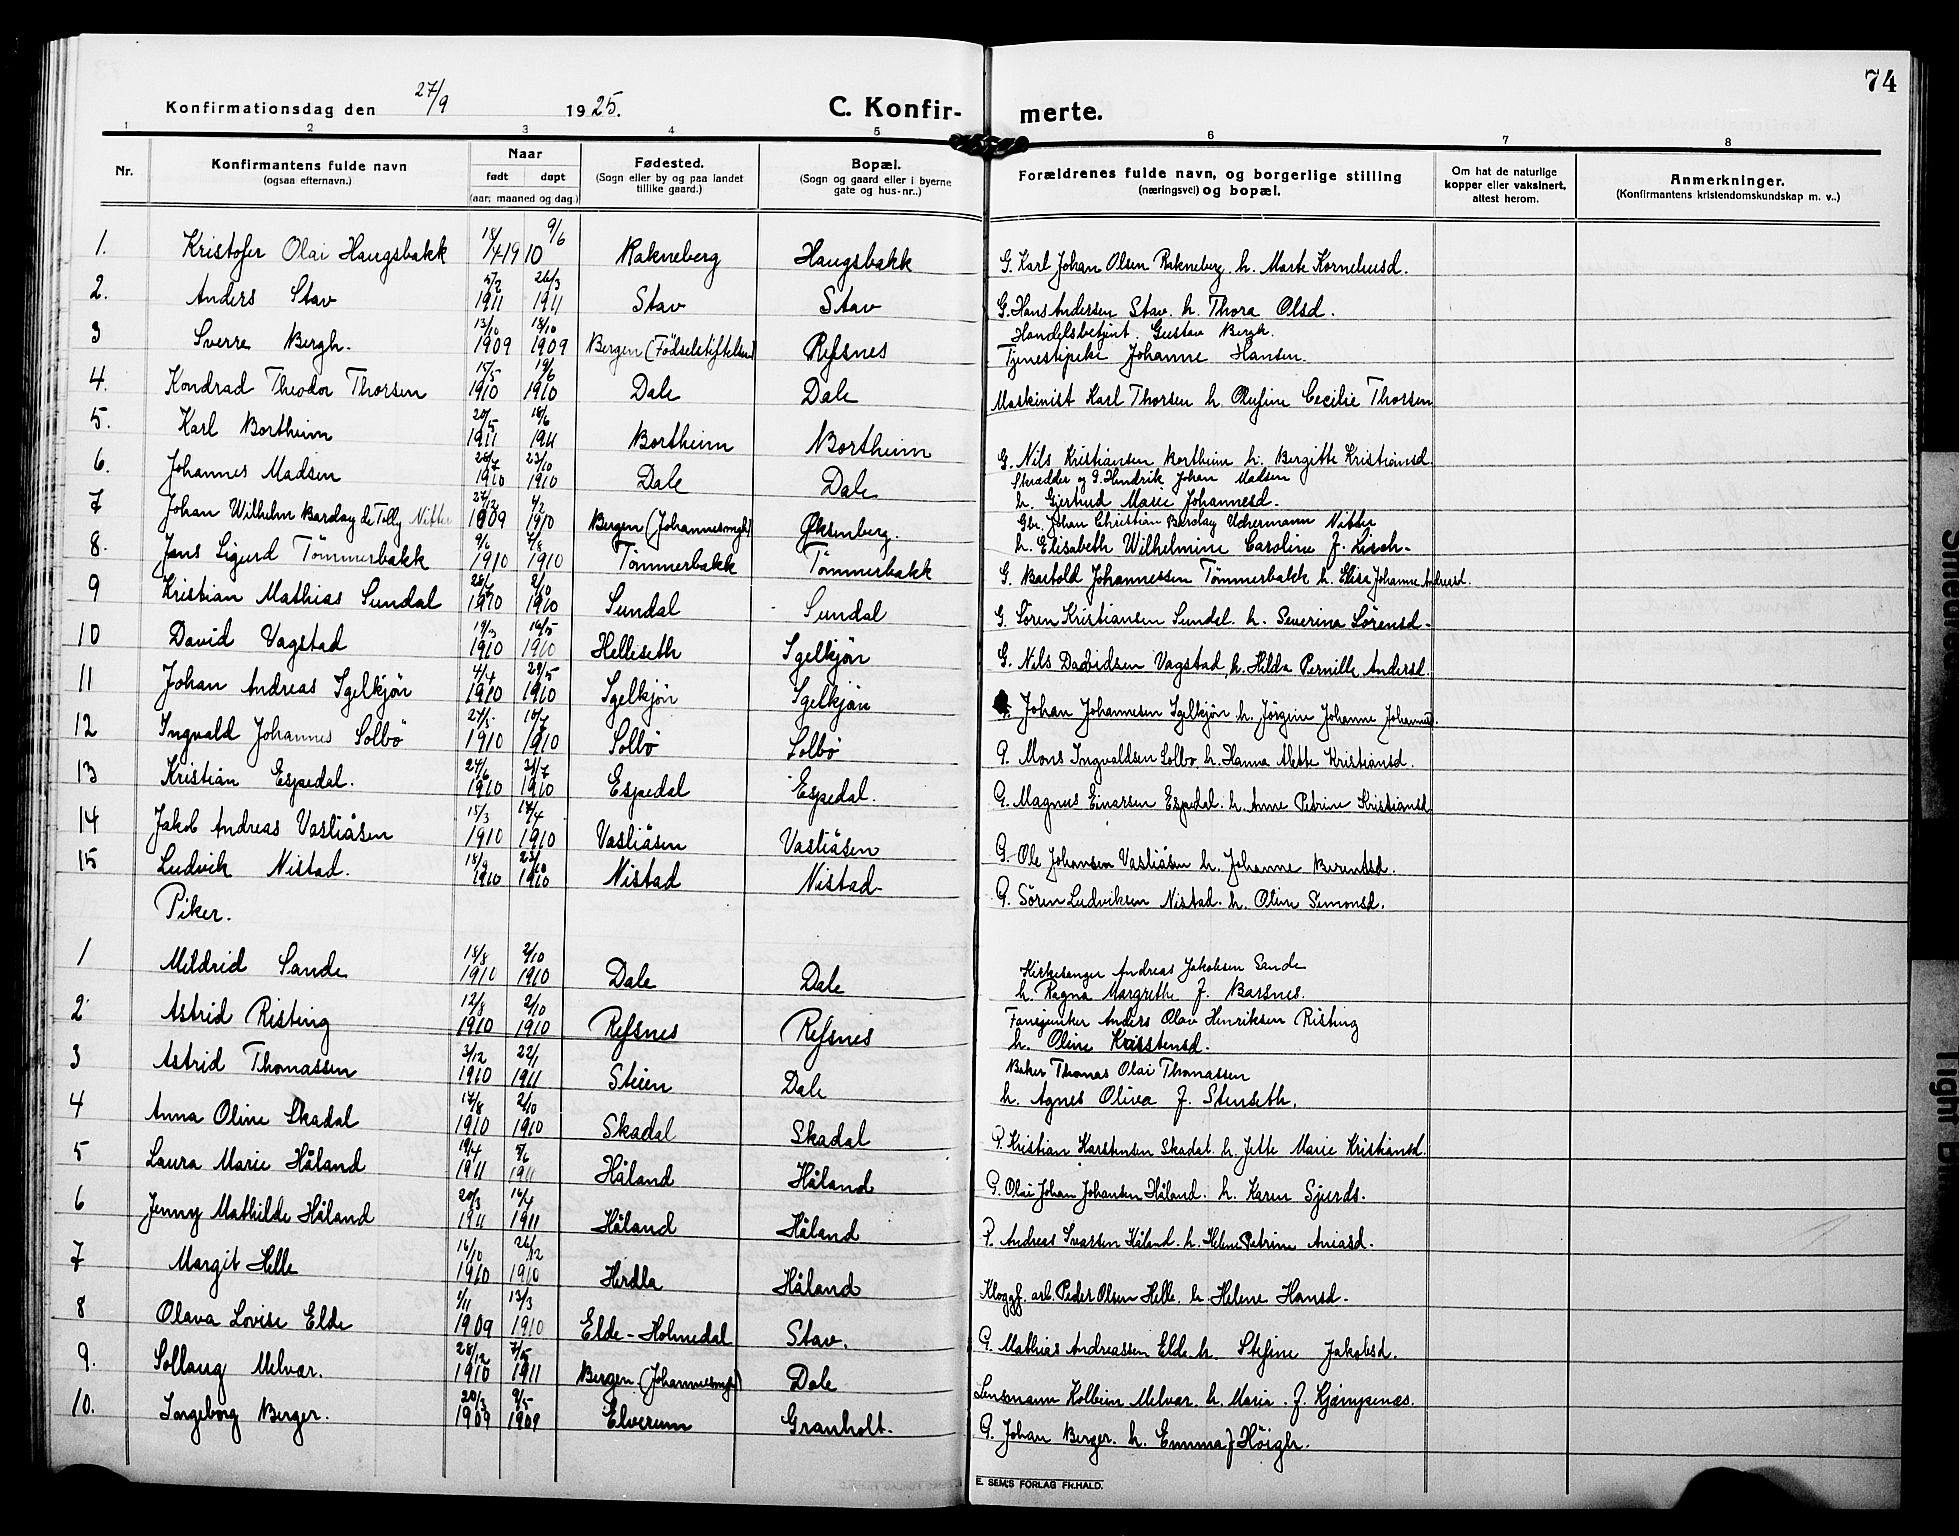 74
Konfirmationsdag den 27/9 1925. C. Konfir- merte.
1 2 3 4 5 6 7 8
Nr. Konfirmantens fulde navn (ogsaa efternavn.) Naar født døpt (aar, maaned og dag.) Fødested. (Sogn eller by og paa landet tillike gaard.) Bopæl. (Sogn og gaard eller i byerne gate og hus-nr..) Forældrenes fulde navn, og borgerlige stilling (næringsvei) og bopæl. Om hat de naturlige kopper eller vaksinert, attest herom. Anmerkninger. (Konfirmantens kristendomskundskap m. v..)
1. Kristofer Olai Haugsbakk 18/4 1910 9/6 Rakneberg Haugsbakk G. Karl Johan Olsen Rakneberg h. Marte Korneliusd.
2. Anders Stav 5/2 1911 26/3 1911 Stav Stav G. Hans Andersen Stav. h. Thora Olsd.
3 Sverre Bergh. 13/10 1909 18/10 1909 Bergen (Fødselstiftelsen) Refsnes Handelsbetjent. Gustav Bergh. Tjenestepike Johanne Hansen.
4. Kondrad Theodor Thorsen 15/5 1910 19/6 1910 Dale Dale Maskinist Karl Thorsen h. Olufine Cecilie Thorsen
5. Karl Bortheim 20/5 1911 18/6 1911 Bortheim Bortheim G. Nils Kristiansen Bortheim h. Bergitte Kristiansd.
6. Johannes Madsen 28/7 1910 23/10 1910 Dale Dale Skrædder og G. Hendrik Johan Madsen h. Gjertrud Marie Johannesd.
7 Johan Wilhelm Barclay de Tolly Nitter 27/12 1909 4/2 1910 Bergen (Johannesmgh) Øksenberg. Gbr. Johan Christian Barclay Uchermann Nitter h. Elisabeth Wilhelmine Caroline f. Lisch.
8. Jens Sigurd Tømmerbakk 9/6 1910 7/8 1910 Tømmerbakk Tømmerbakk G. Bartold Johannessen Tømmerbakk h. Elisa Johanne Andersd.
9 Kristian Mathias Sundal 1910 2/10 1910 Sundal Sundal G. Søren Kristiansen Sundal. h. Severina Sørensd.
10 David Vagstad 19/3 1910 16/5 1910 Helleseth Igelkjøn G. Nils Davidsen Vagstad, h. Hilda Pernille Andersd.
11 Johan Andreas Igelkjøn 4/4 1910 29/5 1910 Igelkjøn Igelkjøn G. Johan Johannesen Igelkjøn h. Jørgine Johanne Johannesd.
12 Ingvald Johannes Solbø 27/5 1910 10/7 1910 Solbø Solbø G. Mons Ingvaldsen Solbø. h. Hanna Mette Kristiansd.
13 Kristian Espedal. 24/6 1910 1910 Espedal Espedal. G. Magnus Einarsen Espedal. h. Anne Petrine Kristiansd
14 Jakob Andreas Vasliåsen 15/3 1910 17/4 1910 Vasliåsen Vasliåsen G. Ole Johansen Vasliåsen h. Johanne Berentsd.
15 Ludvik Nistad. 18/9 1910 23/10 1910 Nistad Nistad G. Søren Ludviksen Nistad. h. Oline Simonsd.
Piker.
1 Mildrid Sande 18/8 1910 2/10 1910 Dale Dale Kirkesanger Andreas Jakobsen Sande h. Ragna Margrethe f. Barsnes.
2 Astrid Risting 12/8 1910 2/10 1910 Refsnes Refsnes Fanejunker Anders Olav Henriksen Risting h. Oline Kristensd.
3 Astrid Thomassen 3/12 1910 22/1 1911 Steien Dale Baker Thomas Olai Thomassen h. Agnes Oliva f. Stenseth.
4 Anna Oline Skadal 17/8 1910 2/10 1910 Skadal Skadal G. Kristian Karstensen Skadal. h. Jette Marie Kristiansd.
5 Laura Marie Håland 19/4 1911 5/6 1911 Håland Håland G. Olai Johan Johansen Håland. h. Karen Sjurds.
6 Jenny Mathilde Håland 20/3 1911 16/4 1911 Håland Håland P. Andreas Ivarsen Håland. h. Helene Petrine Aniasd.
7 Margit Helle 16/10 1910 26/12 1910 Herdla Håland Kloggf. arb. Peder Olsen Helle. h. Helene Hansd.
8 Olava Lovise Elde 1/11 1909 13/3 1910 Elde - Holmedal Stav. G. Mathias Andreassen Elde h. Stefine Jakobsd.
9. Sollaug Melvær. 28/12 1910 7/5 1911 Bergen (Johannesmgh) Dale Lensmann Kolbein Melvær. h. Maria. f. Kjempenes.
10. Ingeborg Berger. 20/3 1909 9/5 1909 Elverum Granholt. G. Johan Berger. h. Emma f Høigh.
E. SEM'S FORLAG FR.HALD.